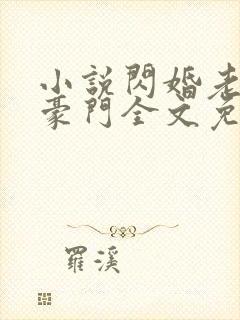 小說閃婚老
豪門全文免
羅溪